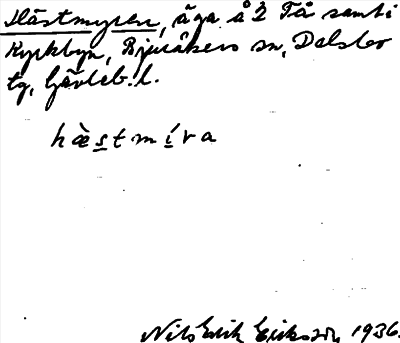 Hästmyren, äga å 2 Tå samt i
Kyrkbyn, Bjuråkers sn, Dels​bo
tg, Gävleb. l.
hæ̀stmíra
Nils Erik Eriksson, 1936.